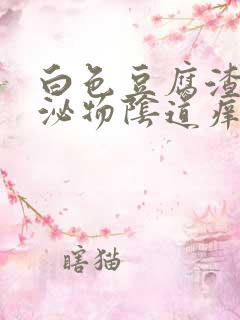 白色豆腐渣
泌物陰道痒
瞎猫